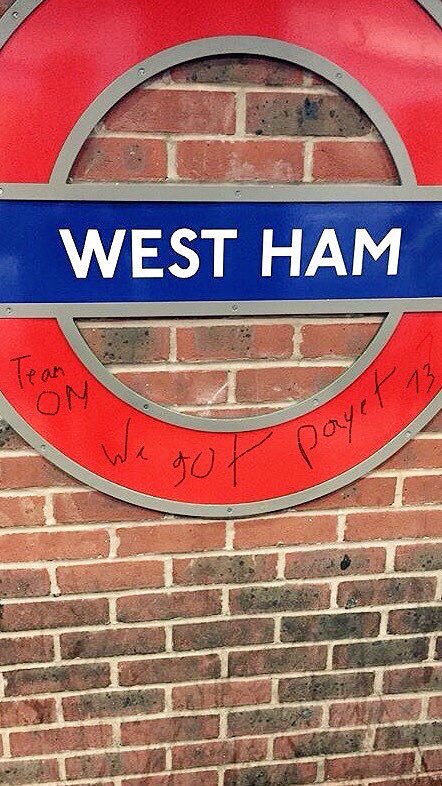 WEST HAM
Team
OM
We got payet 13